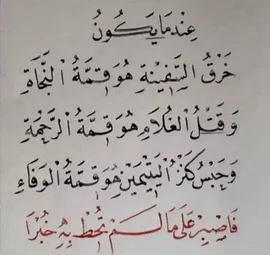 عِنْدَمَا يَكُونُ
خَرْقُ السَّفِينِةِ هُوَ قِمَّةُ النَّجَاةِ
وَقَتْلُ الْغُلَامِ هُوَ قِمَّةُ الرَّحْمَةِ
وَحَبْسُ كَنْزِ الْيَتِيمَيْنِ هُوَ قِمَّةُ الْوَفَاءِ
فَاصْبِرْ عَلَى مَا لَمْ تُحِطْ بِهِ خُبْرًا